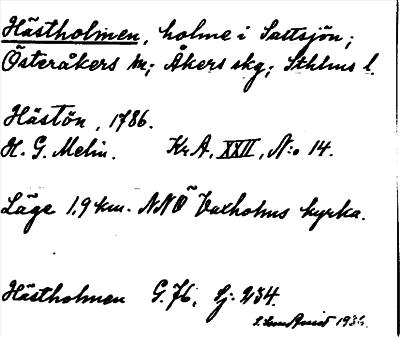 Hästholmen, holme i Saltsjön;
Österåkers sn; Åkers skg; Sthlms l.
Hästön, 1786.
H. G. Melin. Kr.A, XXII, N:o 14.
Läge 1,9 km. NNÖ Vaxholms kyrka.
Hästholmen G. 76, Sj: 234.
1936.